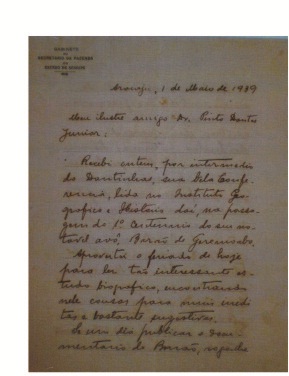 GABINETE
DO
SECRETARIO DA FAZENDA
DO
ESTADO DE SERGIPE
Aracaju, 1 de Maio de 1939
Meu ilustre amigo Dr. Pinto Dantas
Junior:
Recebi ontem, por intermedio
de Dantinhas, sua bela Confe
rencia, lida no Instituto Geo
grafico e Historico daí, na passa
gem do 1º Centenario do seu no
tavel avô, Barão de Geremoabo.
Aproveitei o feriado de hoje
para ler tão interessante es
tudo biografico, encontrando
nele cousas para mim inedi
tas e bastante sugestivas.
Se um dia publicar o docu-
mentario do Barão,